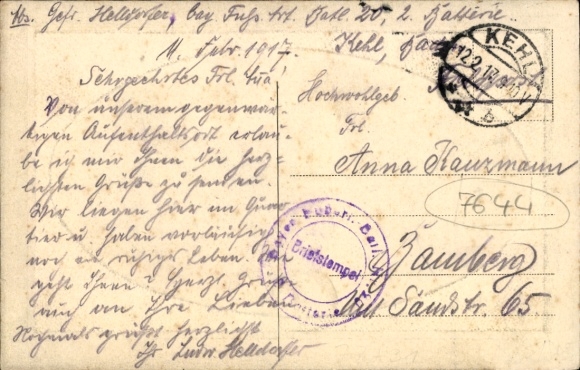 Abs. Gefr. Helldorfer, bay. Fuhs. Art. Batl. 20, 2. Batterie
Kehl,
11. Febr. 1917.
Sehrgeehrtes Frl.
Von unserem gegenwär-
tigen Aufenthaltsort erlau-
be ich mir Ihnen die herz-
lichsten Grüße zu senden.
Wir liegen hier im Quar-
tier u. haben vorläufig
noch ein ruhiges Leben.
geht Ihnen? Herzl. Gruß
auch an Ihre Lieben
Nochmals grüßt herzlichst
Ihr Ludw. Helldorfer
KEHL
12.2.17
b
Hochwohlgeb.
Frl.
Anna Kauzmann
7644
Bamberg
Sandstr. 65.
Briefstempel